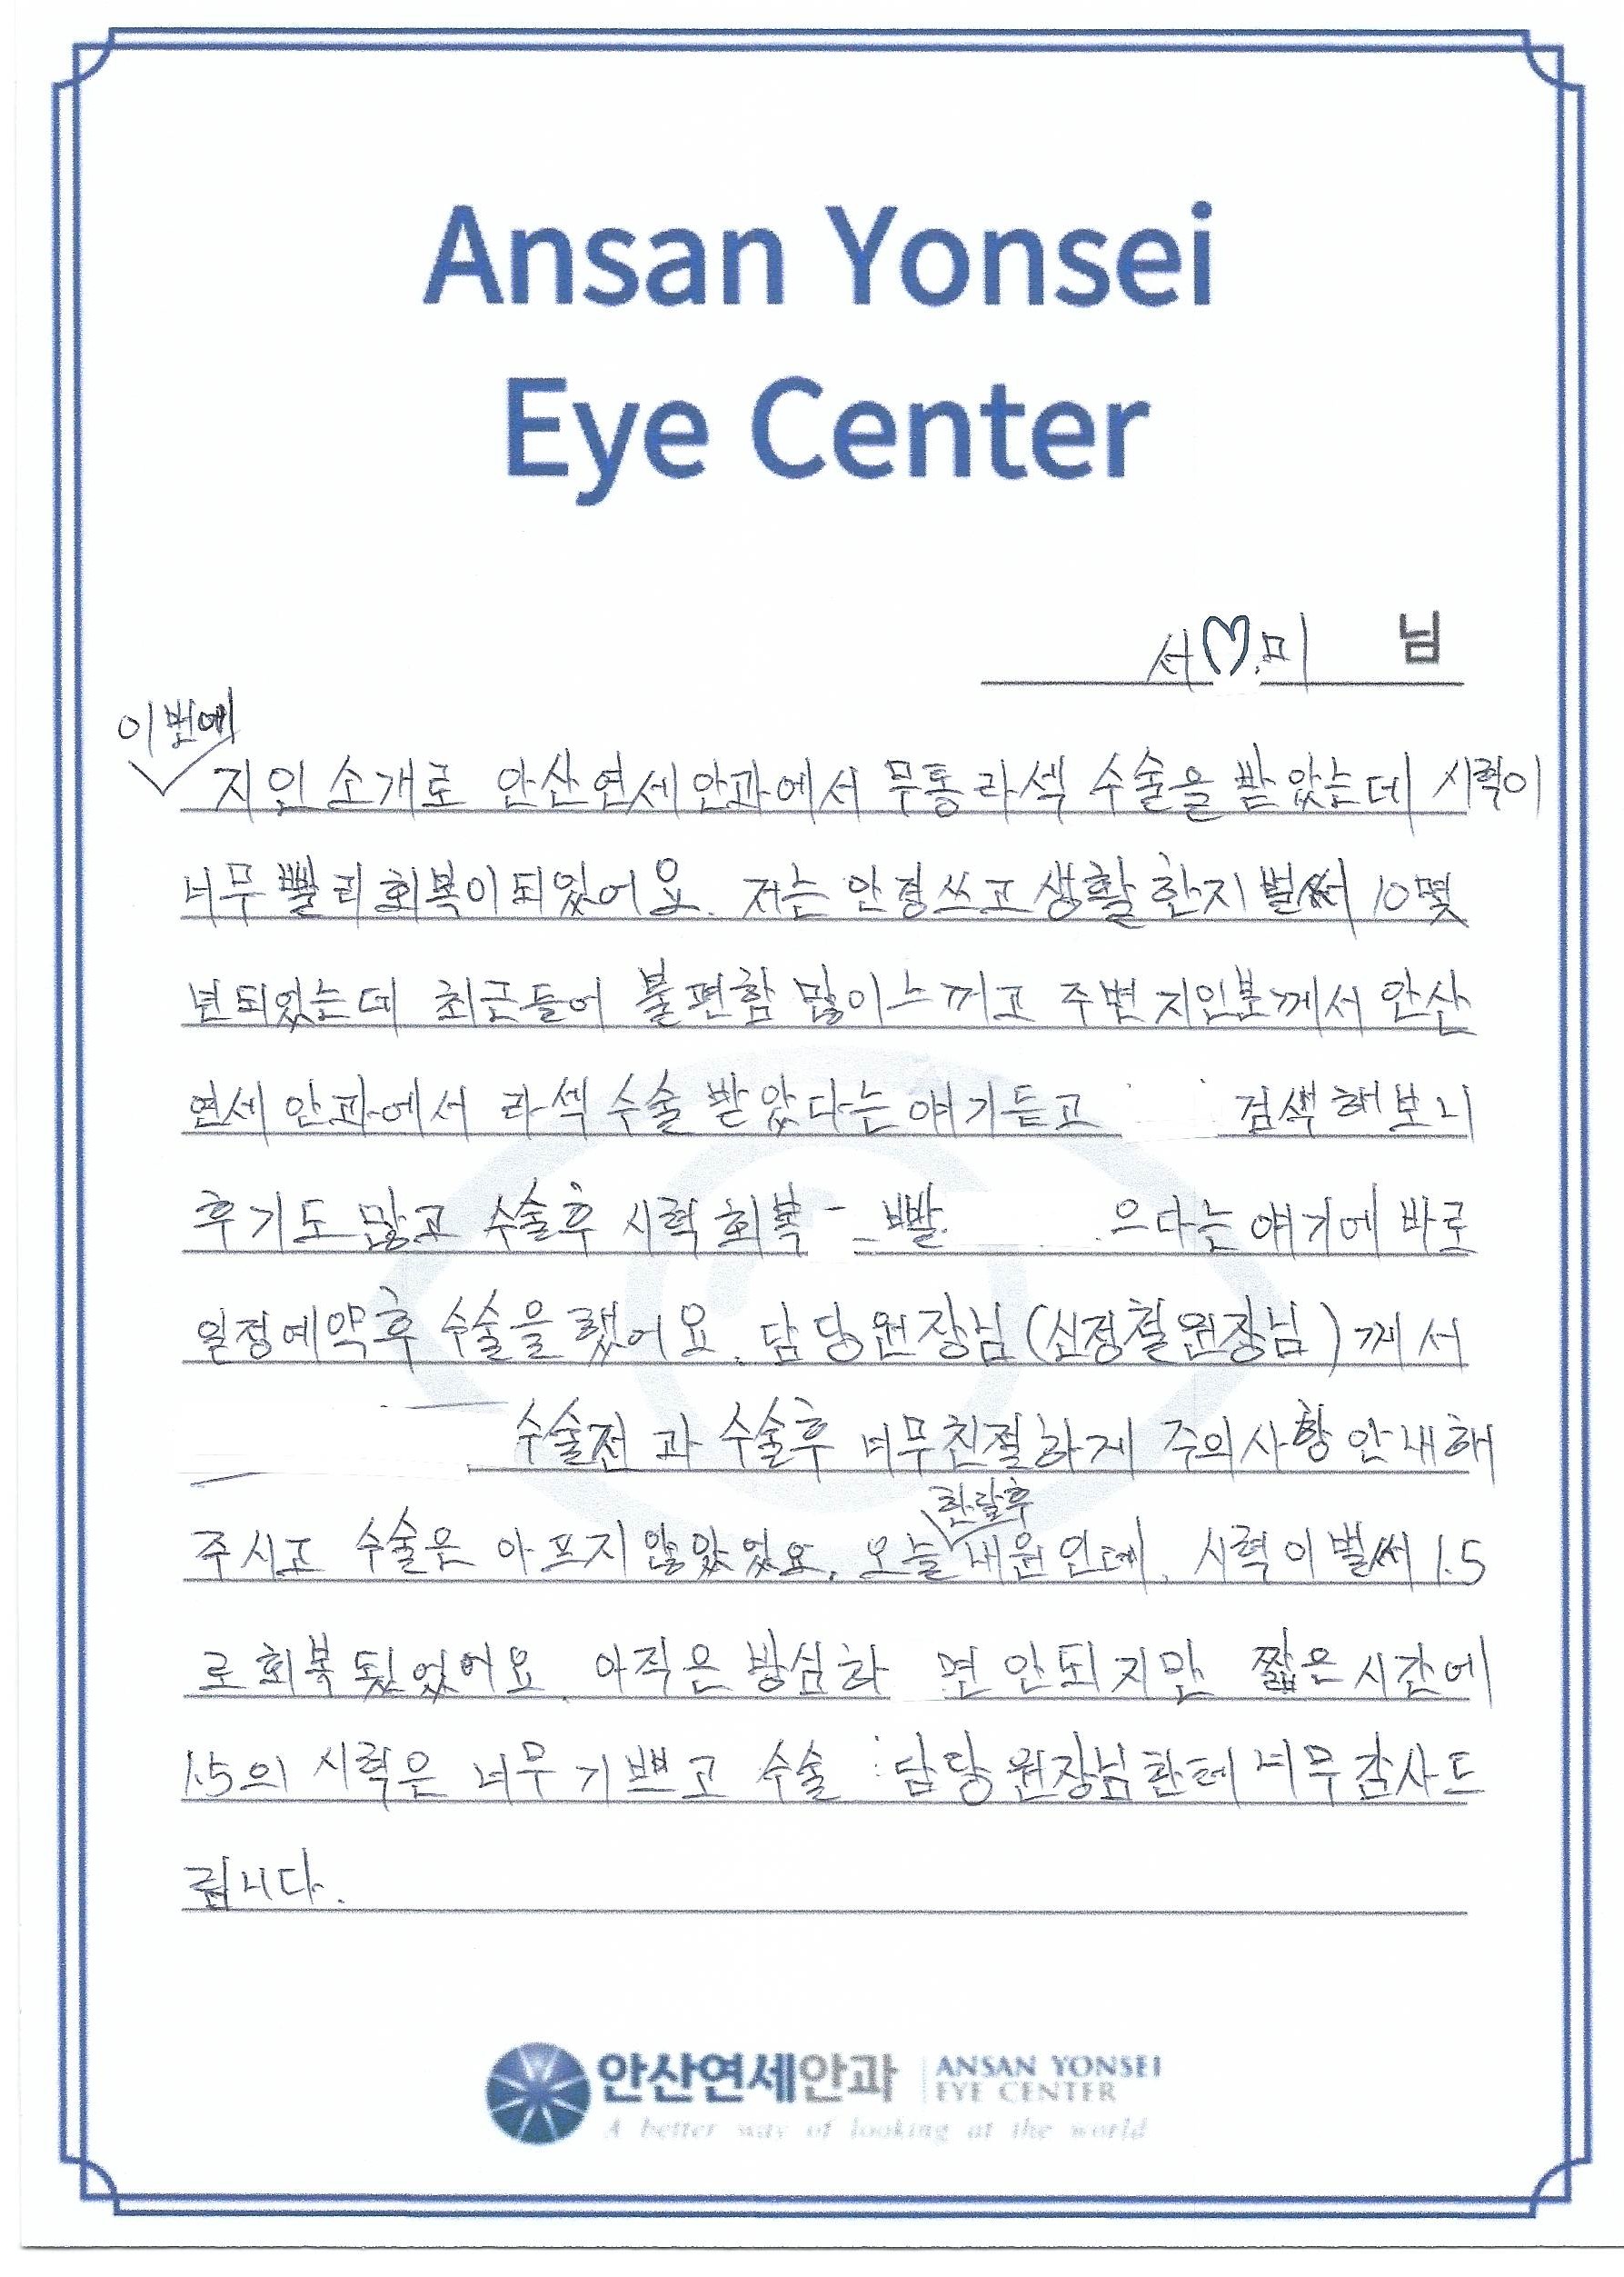 Ansan Yonsei
Eye Center
서♡미 님
이번에
지인 소개로 안산연세안과에서 무통 라섹 수술을 받았는데 시력이
너무 빨리 회복이되었어요. 저는 안경쓰고 생활한지 벌써 10몇
년되었는데 최근들어 불편함 많이느끼고 주변 지인분께서 안산
연세 안과에서 라섹 수술 받았다는 얘기듣고 검색해보니
후기도 많고 수술후 시력 회복 빨 으다는 얘기에 바로
일정예약후 수술을 했어요. 담당원장님(신정철원장님)께서
수술전 과 수술후 너무친절하게 주의사항 안내해
한달후
주시고 수술은 아프지 않았었요. 오늘 내원인데, 시력이 벌써 1.5
로 회복됬었어요. 아직은 방심하 면 안되지만 짧은 시간에
1.5의 시력은 너무 기쁘고 수술 담당 원장님한테 너무 감사드
립니다.
안산연세안과 ANSAN YONSEI
EYE CENTER
A better way of looking at the world